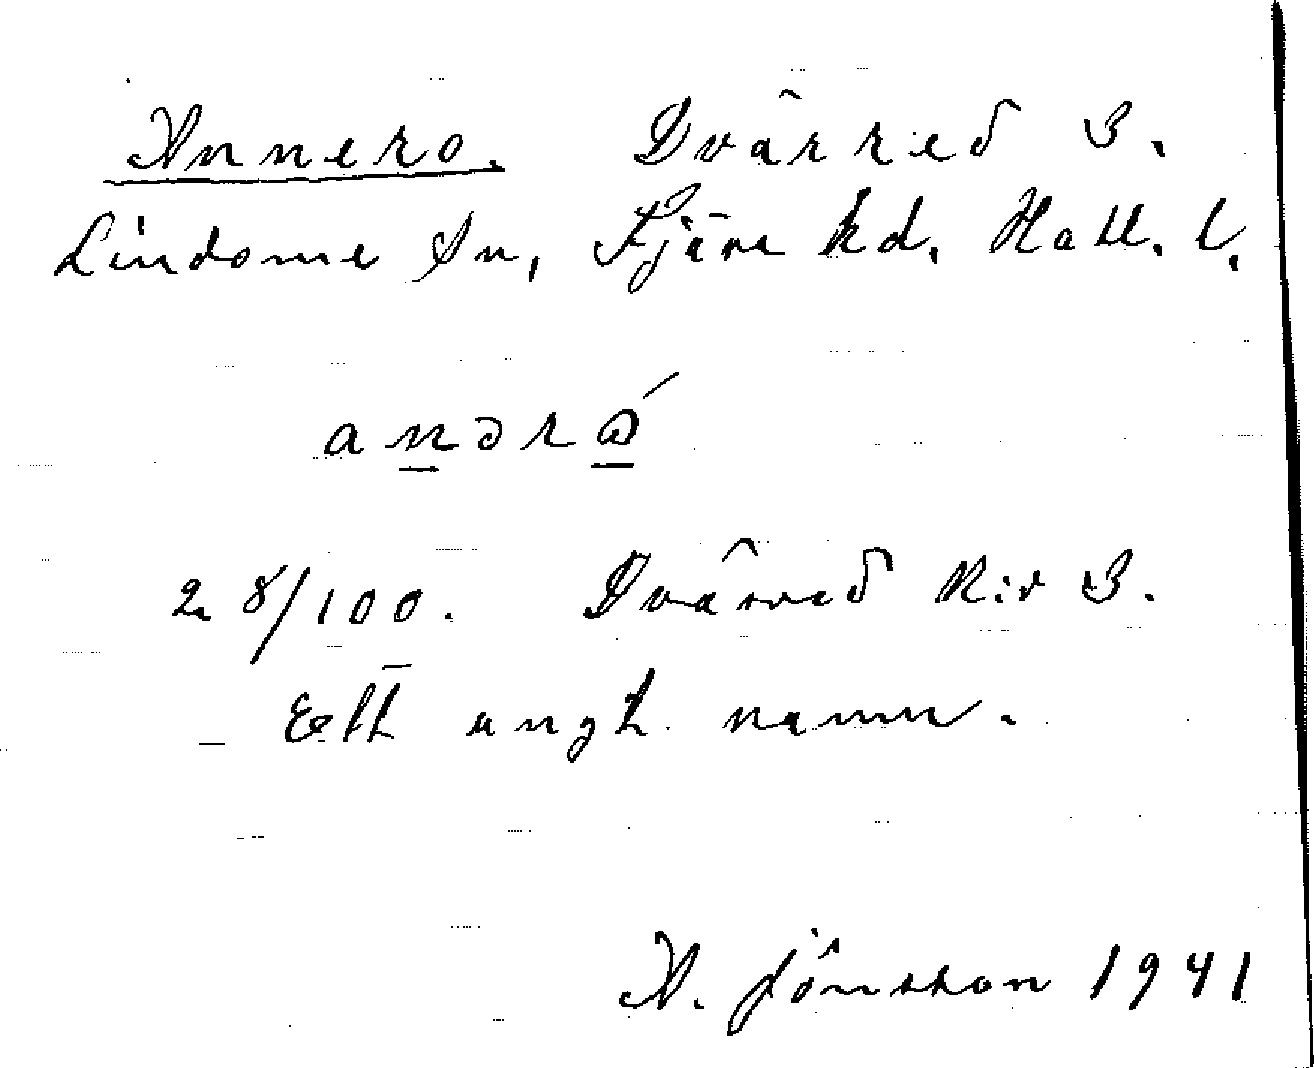 Annero. Dvärred 3.
Lindome sn, Fjäre hd. Hall. l.
anəró
28/100. Dvärred N:r 3.
Ett ungt namn.
A. Jönsson 1941